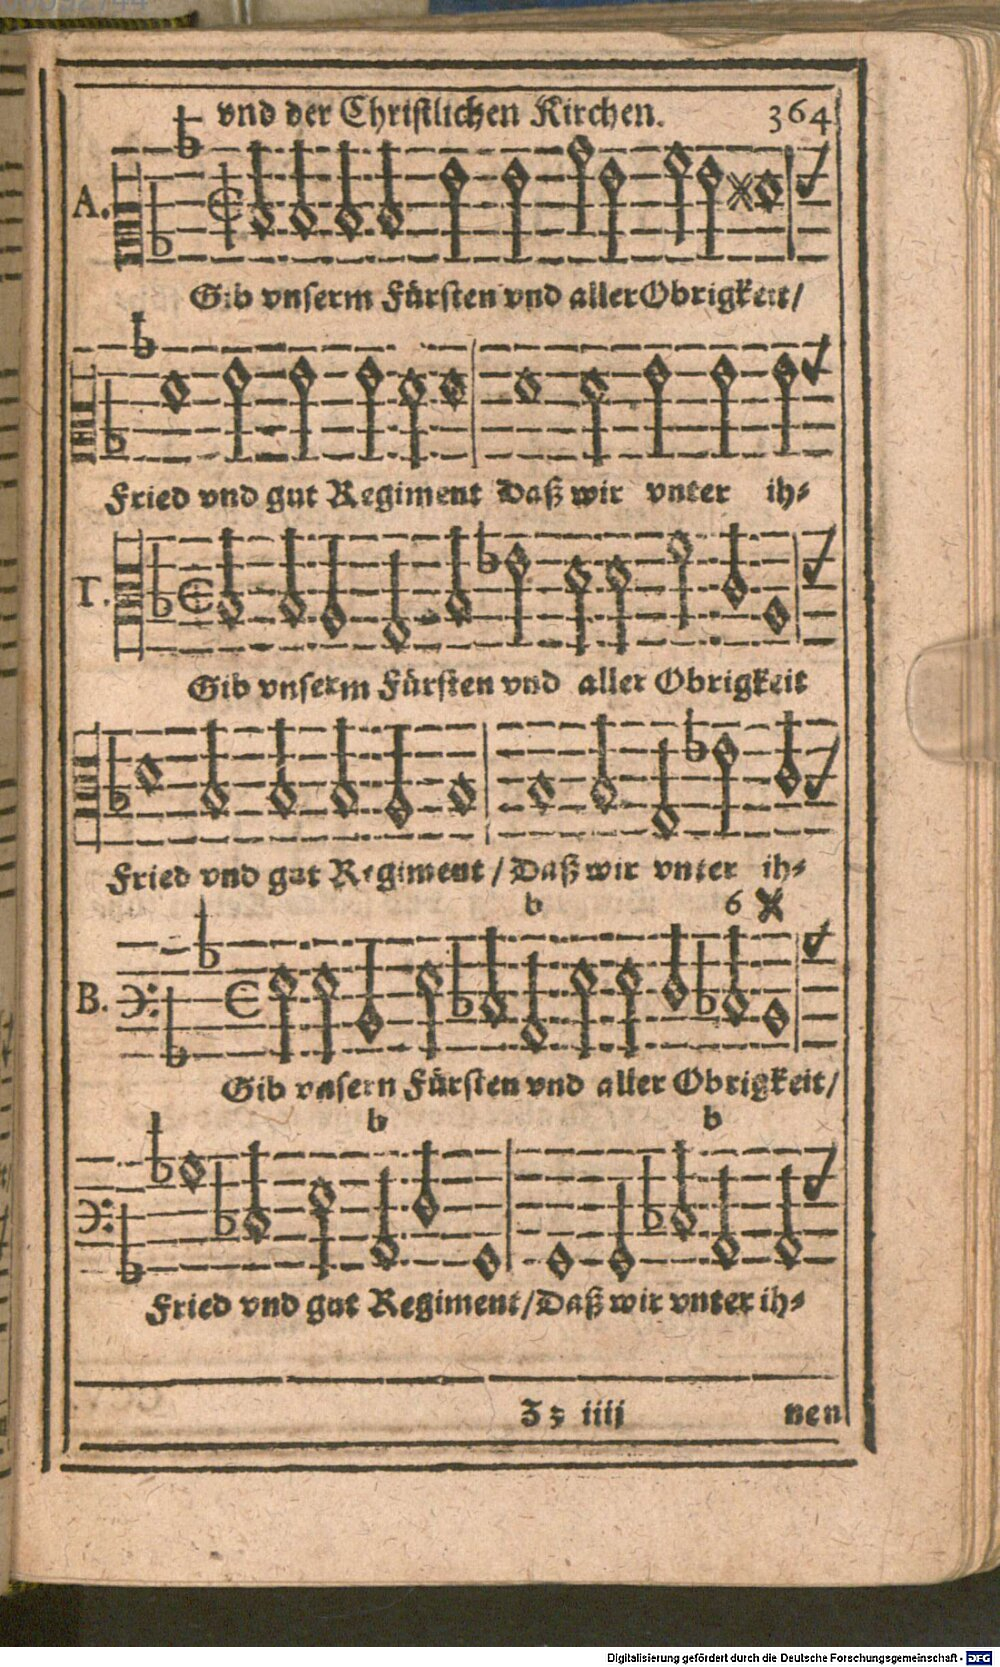 vnd der Christlichen Kirchen. 364
A.
Gib vnserm Fürsten vnd aller Obrigkeit/
Fried vnd gut Regiment Daß wir vnter ih⸗
T.
Gib vnserm Fürsten vnd aller Obrigkeit
Fried vnd gut Regiment / Daß wir vnter ih⸗
b 6
B.
Gib vnsern Fürsten vnd aller Obrigkeit/
b b
Fried vnd gut Regiment/Daß wir vnter ih⸗
Zz iiij nen
Digitalisierung gefördert durch die Deutsche Forschungsgemeinschaft - DFG